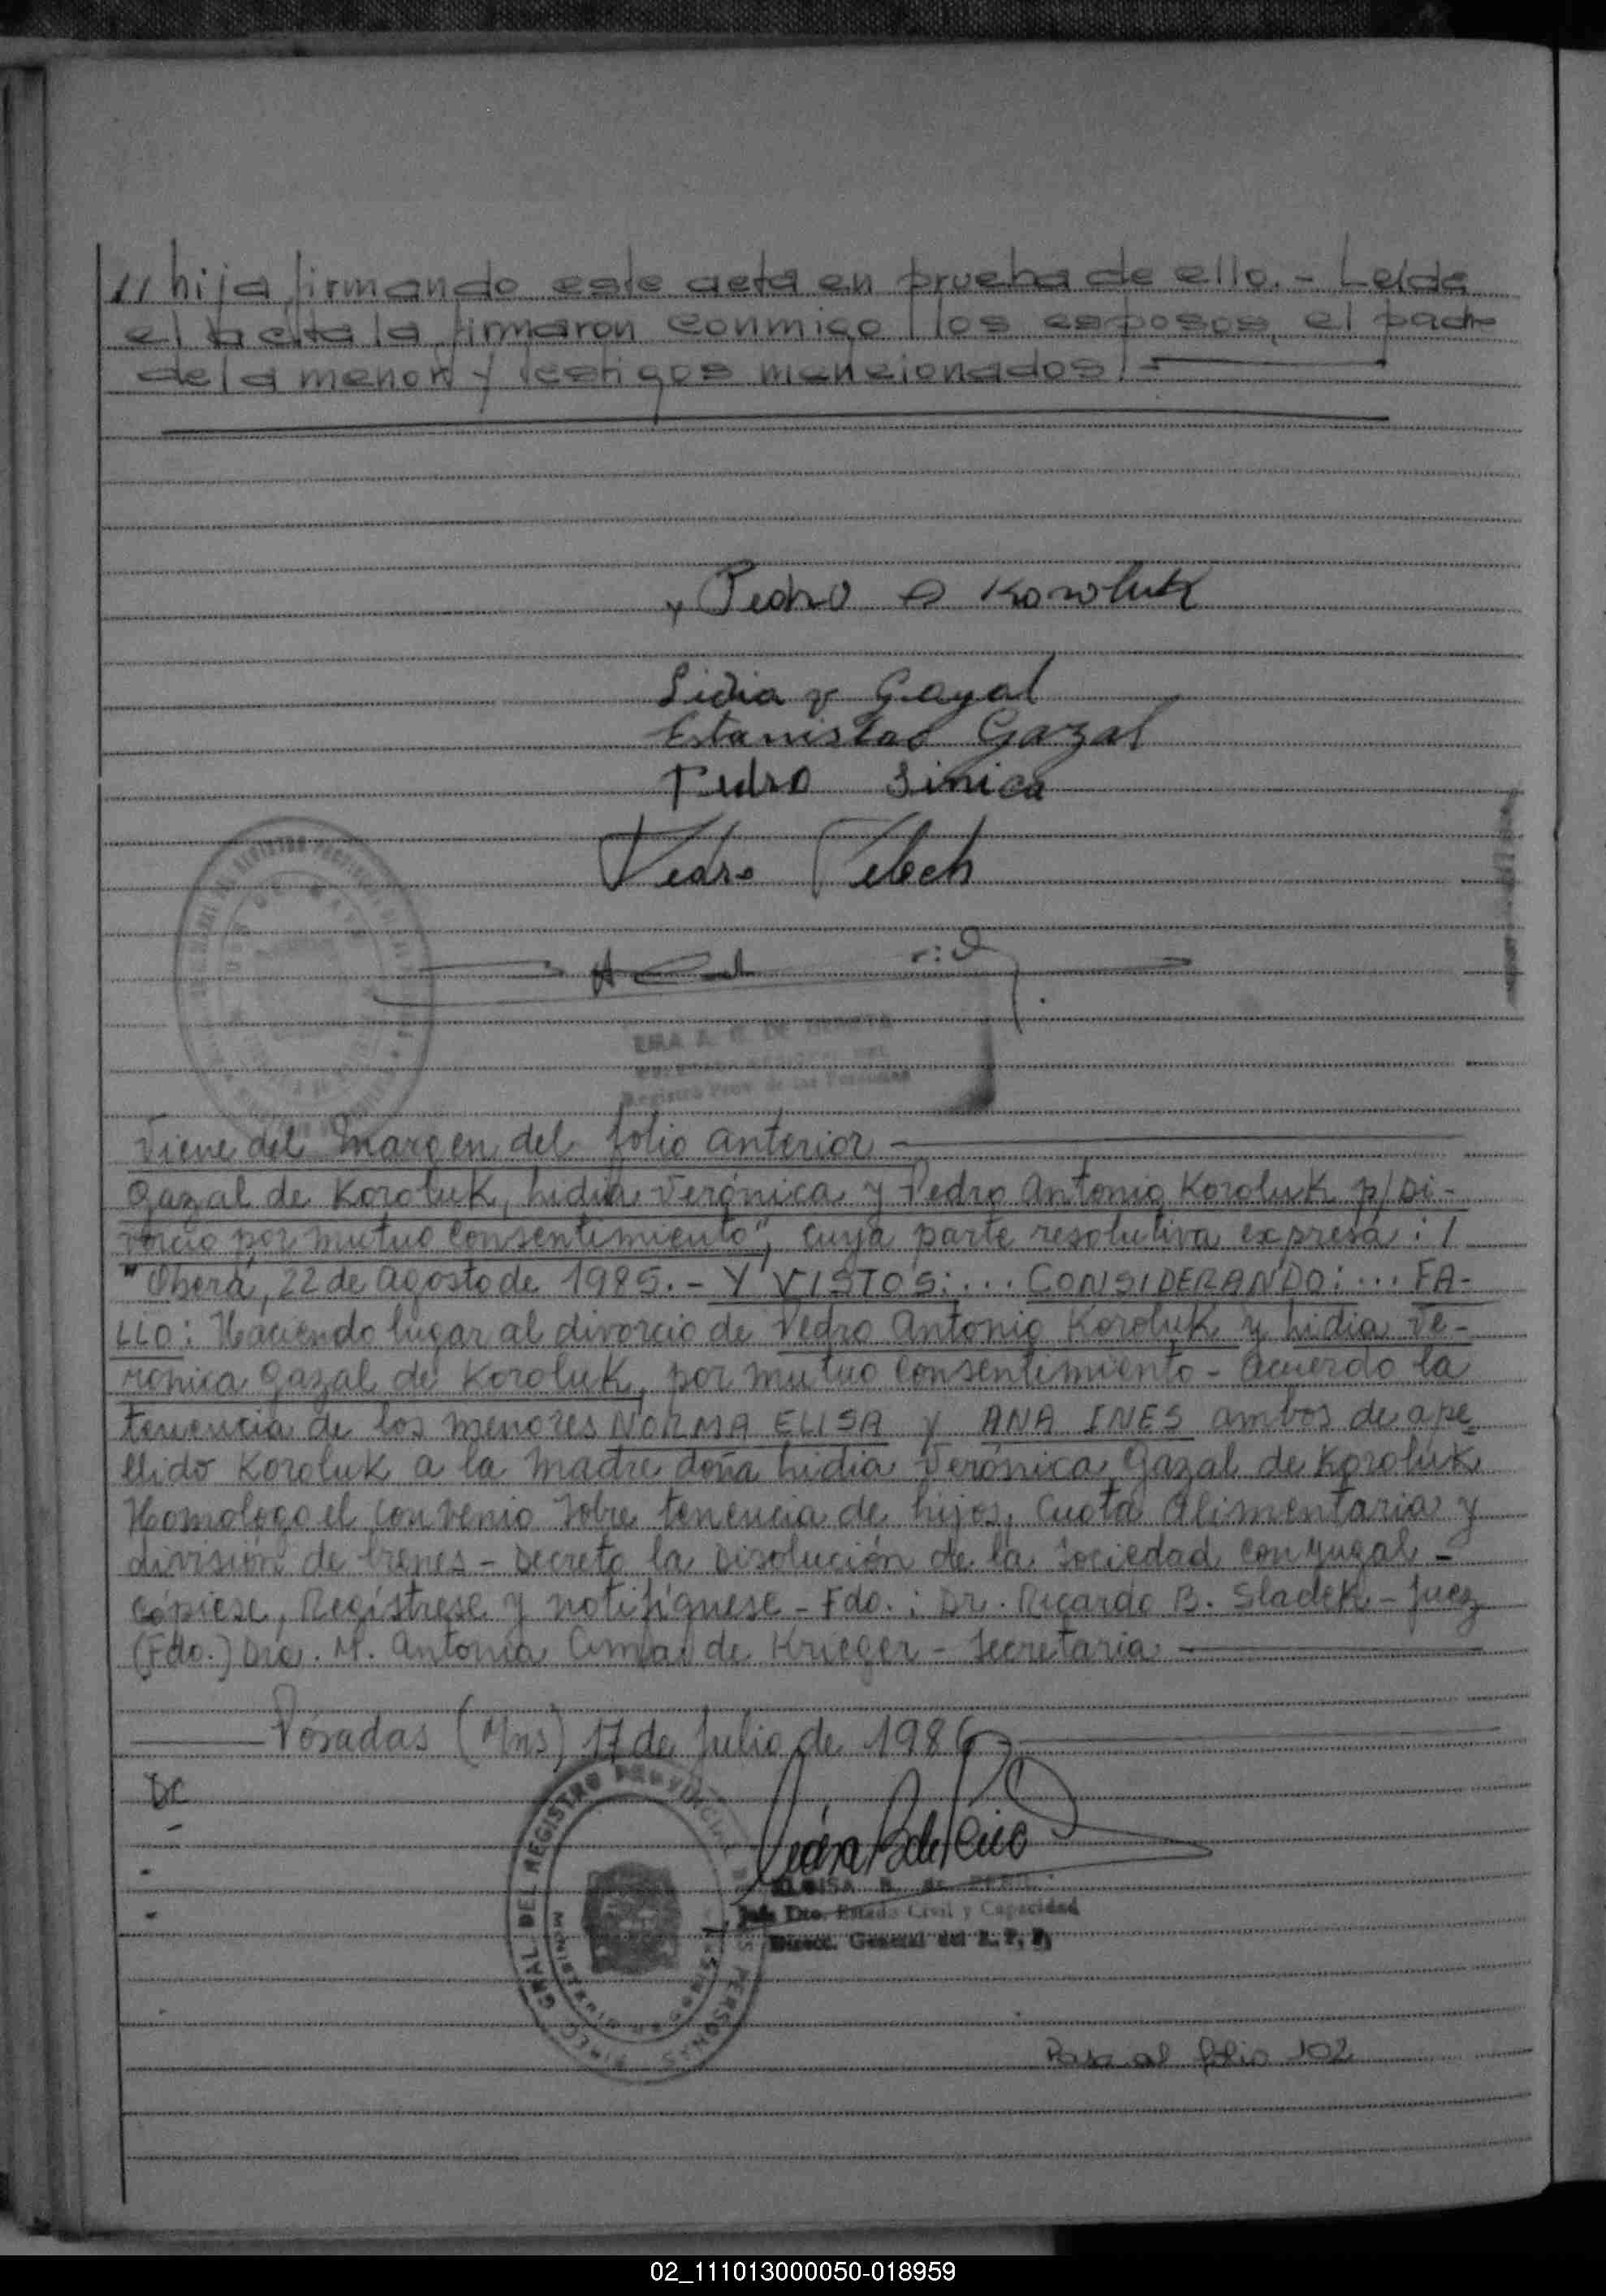 // hija firmando este acta en prueba de ello. - Leída
el acta la firmaron conmigo los esposos, el padre
de la menor y testigos mencionados. -
Pedro A Koroluk
Lidia V Gazal
Estanislao Gazal
Pedro Sinica
Pedro
Registro Prov. de las Personas
Viene del margen del folio anterior
Gazal de Koroluk, Lidia Verónica y Pedro Antonio Koroluk p/Di-
vorcio por mutuo consentimiento", cuya parte resolutiva expresa: /
"Oberá, 22 de Agosto de 1985. - Y VISTOS: ... CONSIDERANDO: ... FA-
LLO: Haciendo lugar al divorcio de Pedro Antonio Koroluk y Lidia Ve-
rónica Gazal de Koroluk, por mutuo consentimiento - Acuerdo la
tenencia de los menores NORMA ELISA y ANA INES ambos de ape-
llido Koroluk a la madre doña Lidia Verónica Gazal de Koroluk
Homologo el convenio sobre tenencia de hijos, cuota alimentaria y
división de bienes - Decreto la Disolución de la Sociedad conyugal -
cópiese, Regístrese y notifíquese - Fdo.: Dr. Ricardo B. Sladek - Juez
(Fdo.) Dra. M. Antonia de Krieger - Secretaria
Posadas (Mns) 17 de Julio de 1986
DC
DEL REGISTRO PROVINCIAL
PERSONAS
Jefa Dto. Estado Civil y Capacidad
Direcc. General del R. P. P.
Pasa al folio 102
02_111013000050-018959